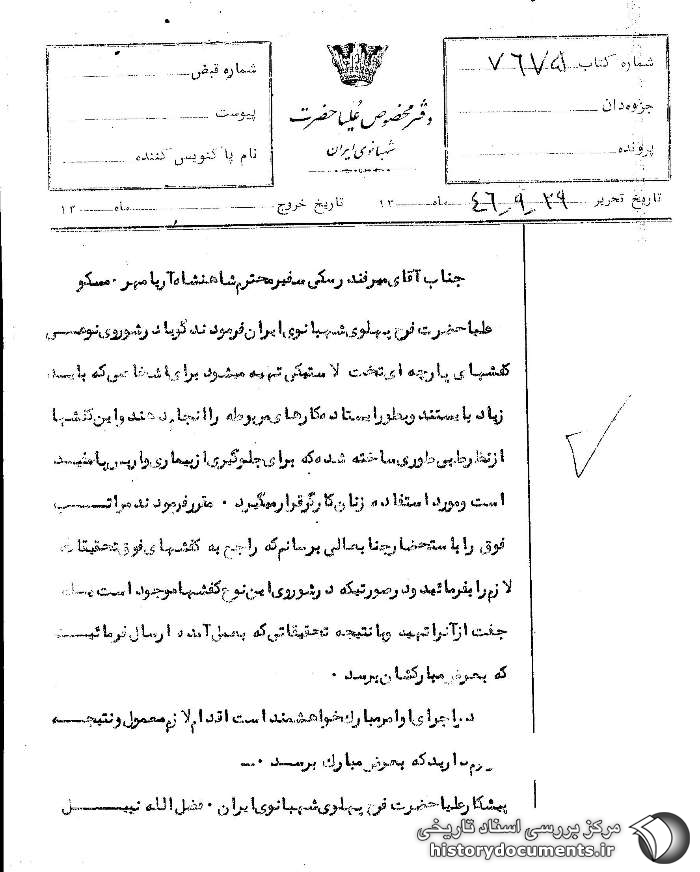 شماره کتاب ۷۶۷۵
جزوه‌دان
پرونده
دفتر مخصوص علیاحضرت
شهبانوی ایران
شماره قبض
پیوست
نام پاکنویس کننده
تاریخ تحریر ۲۹_۹_۴۶ ماه ۱۳ تاریخ خروج ماه ۱۳
جناب آقای میرفندرسکی سفیر محترم شاهنشاه آریامهر ۰ مسکو
علیاحضرت فرح پهلوی شهبانوی ایران فرمودند گویا در شوروی نوعی
کفشهای پارچه ای تخت لاستیکی تهیه میشود برای اشخاصی که باید
زیاد بایستند و بطور ایستاده کارهای مربوطه را انجام دهند و این کفشها
از نظر طبی طوری ساخته شده که برای جلوگیری از بیماری واریس پا مفید
است و مورد استفاده زنان کارگر قرار میگیرد ۰ مقرر فرمودند مراتب
فوق را باستحضار جنابعالی برسانم که راجع به کفشهای فوق تحقیقات
لازم را بفرمائید و در صورتیکه در شوروی این نوع کفشها موجود است
جفت از آنرا تهیه و با نتیجه تحقیقاتی که بعمل آمده ارسال فرمائید
که بعرض مبارکشان برسد ۰
در اجرای اوامر مبارک خواهشمند است اقدام لازم معمول و نتیجه
دارید که بعرض مبارک برسد ۰
پیشکار علیاحضرت فرح پهلوی شهبانوی ایران ۰ فضل الله نبیل
مرکز بررسی اسناد تاریخی
historydocuments.ir